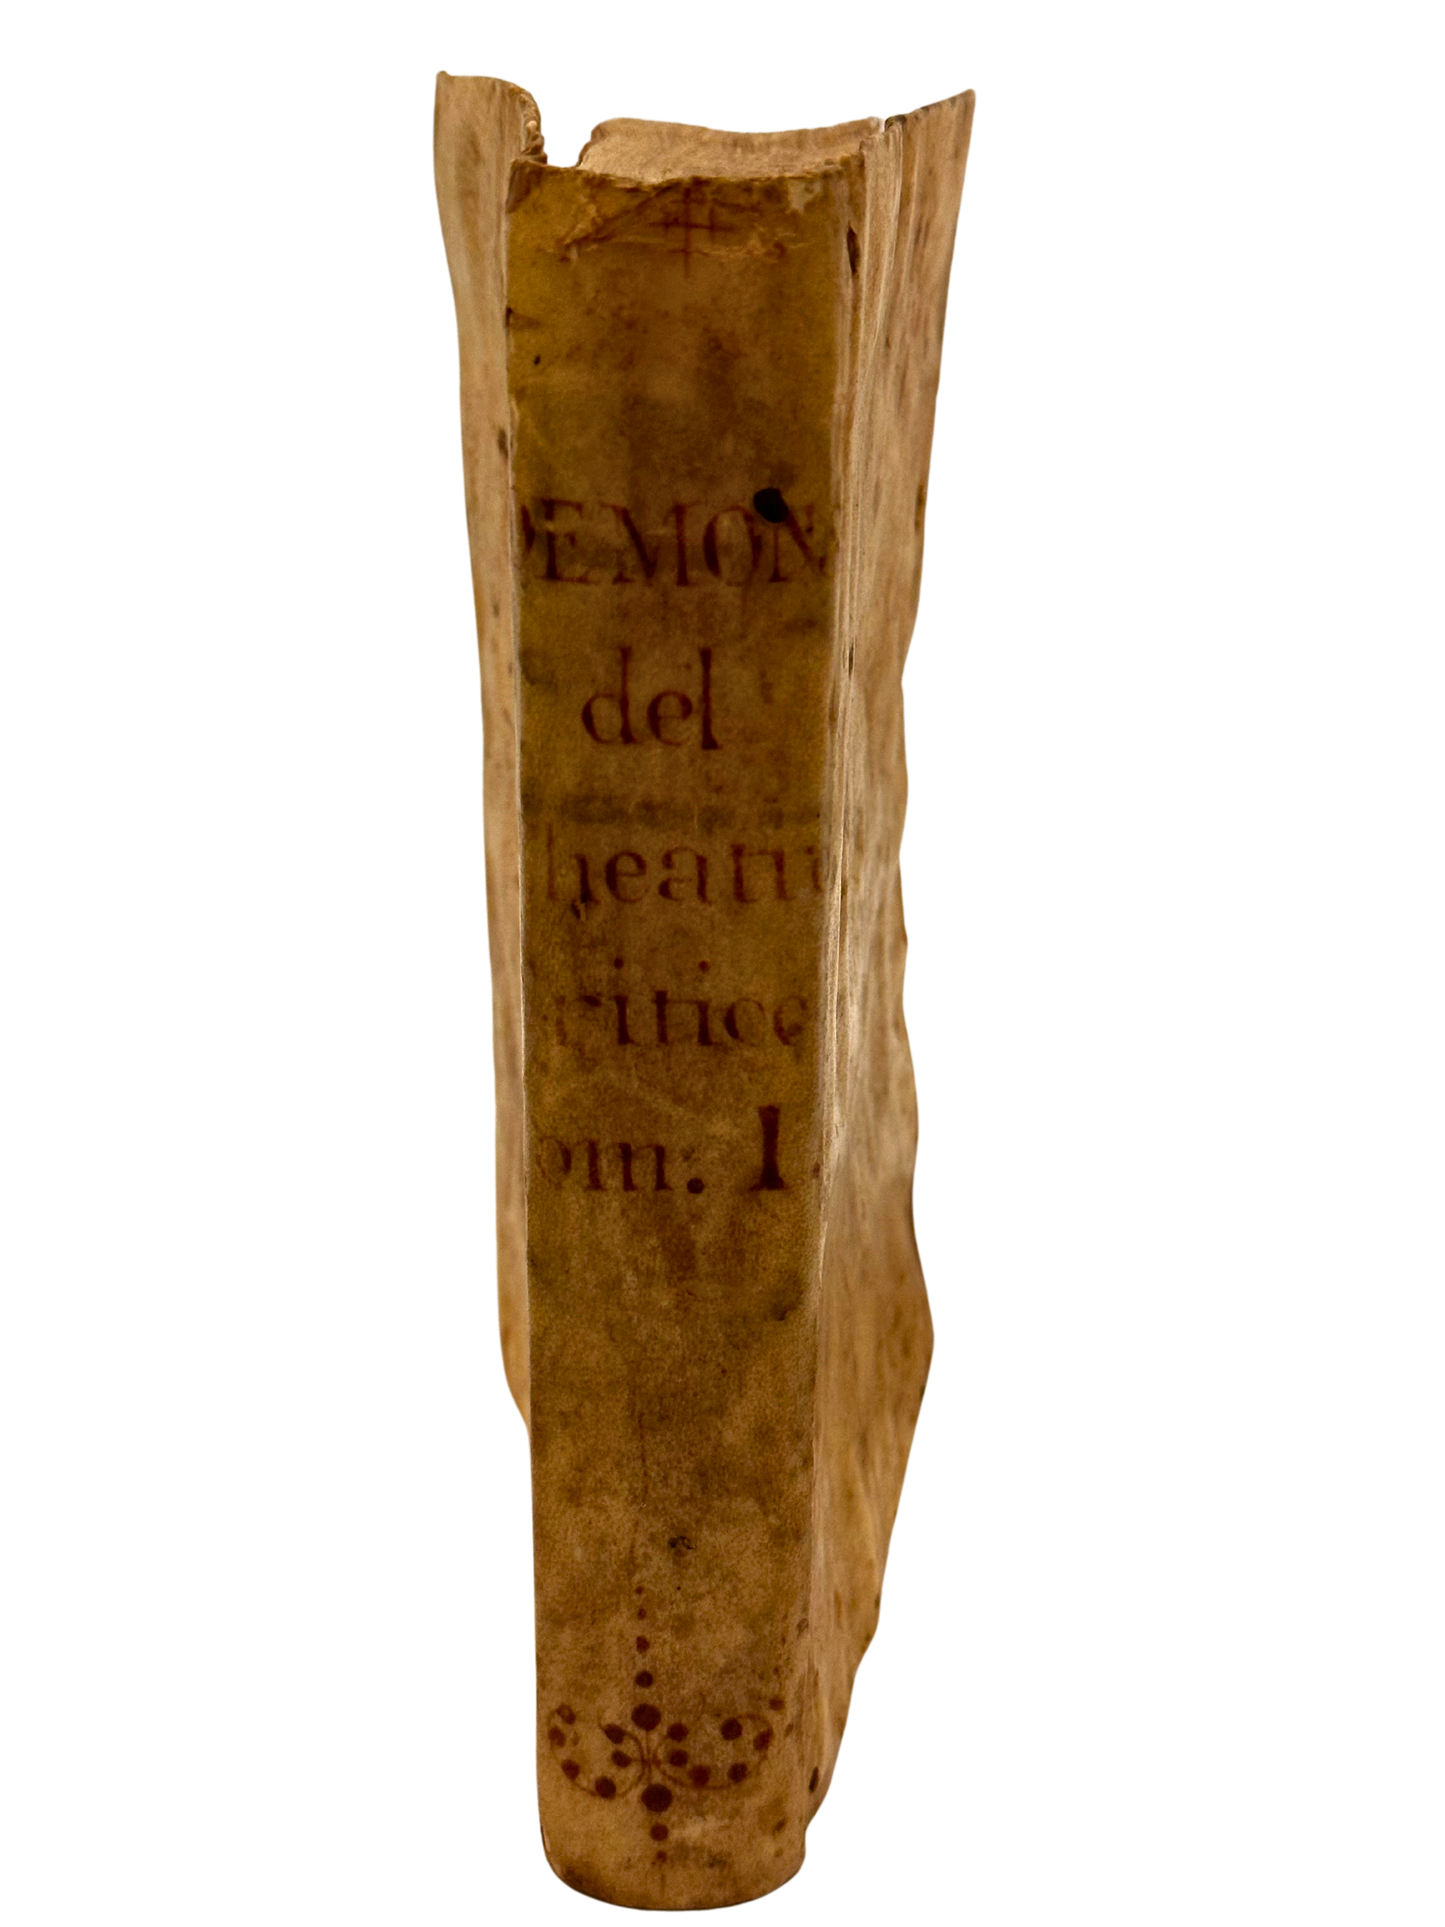 DEMON
del
heatr
ritico
om: I